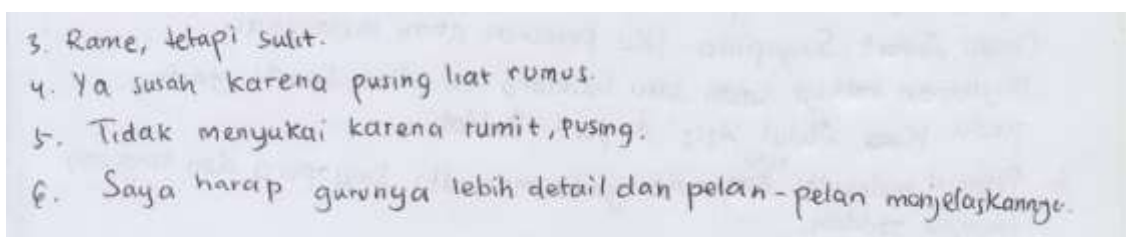 3. Rame, tetapi sulit.
4. Ya susah karena pusing liat rumus.
5. Tidak menyukai karena rumit, pusing.
6. Saya harap gurunya lebih detail dan pelan-pelan menjelaskannya.